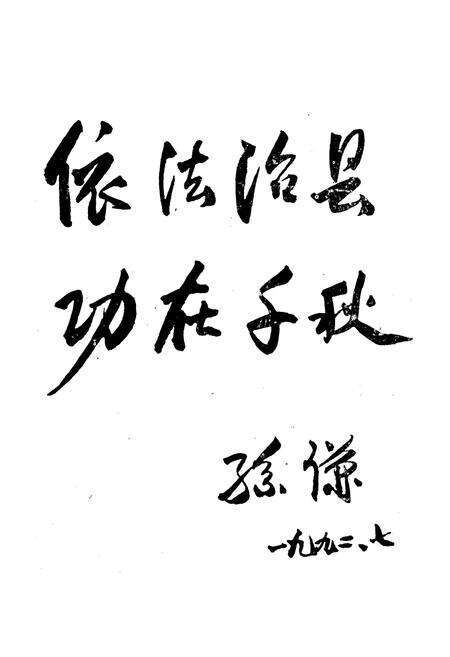 依法治县
功在千秋
孙谦
一九九二、七